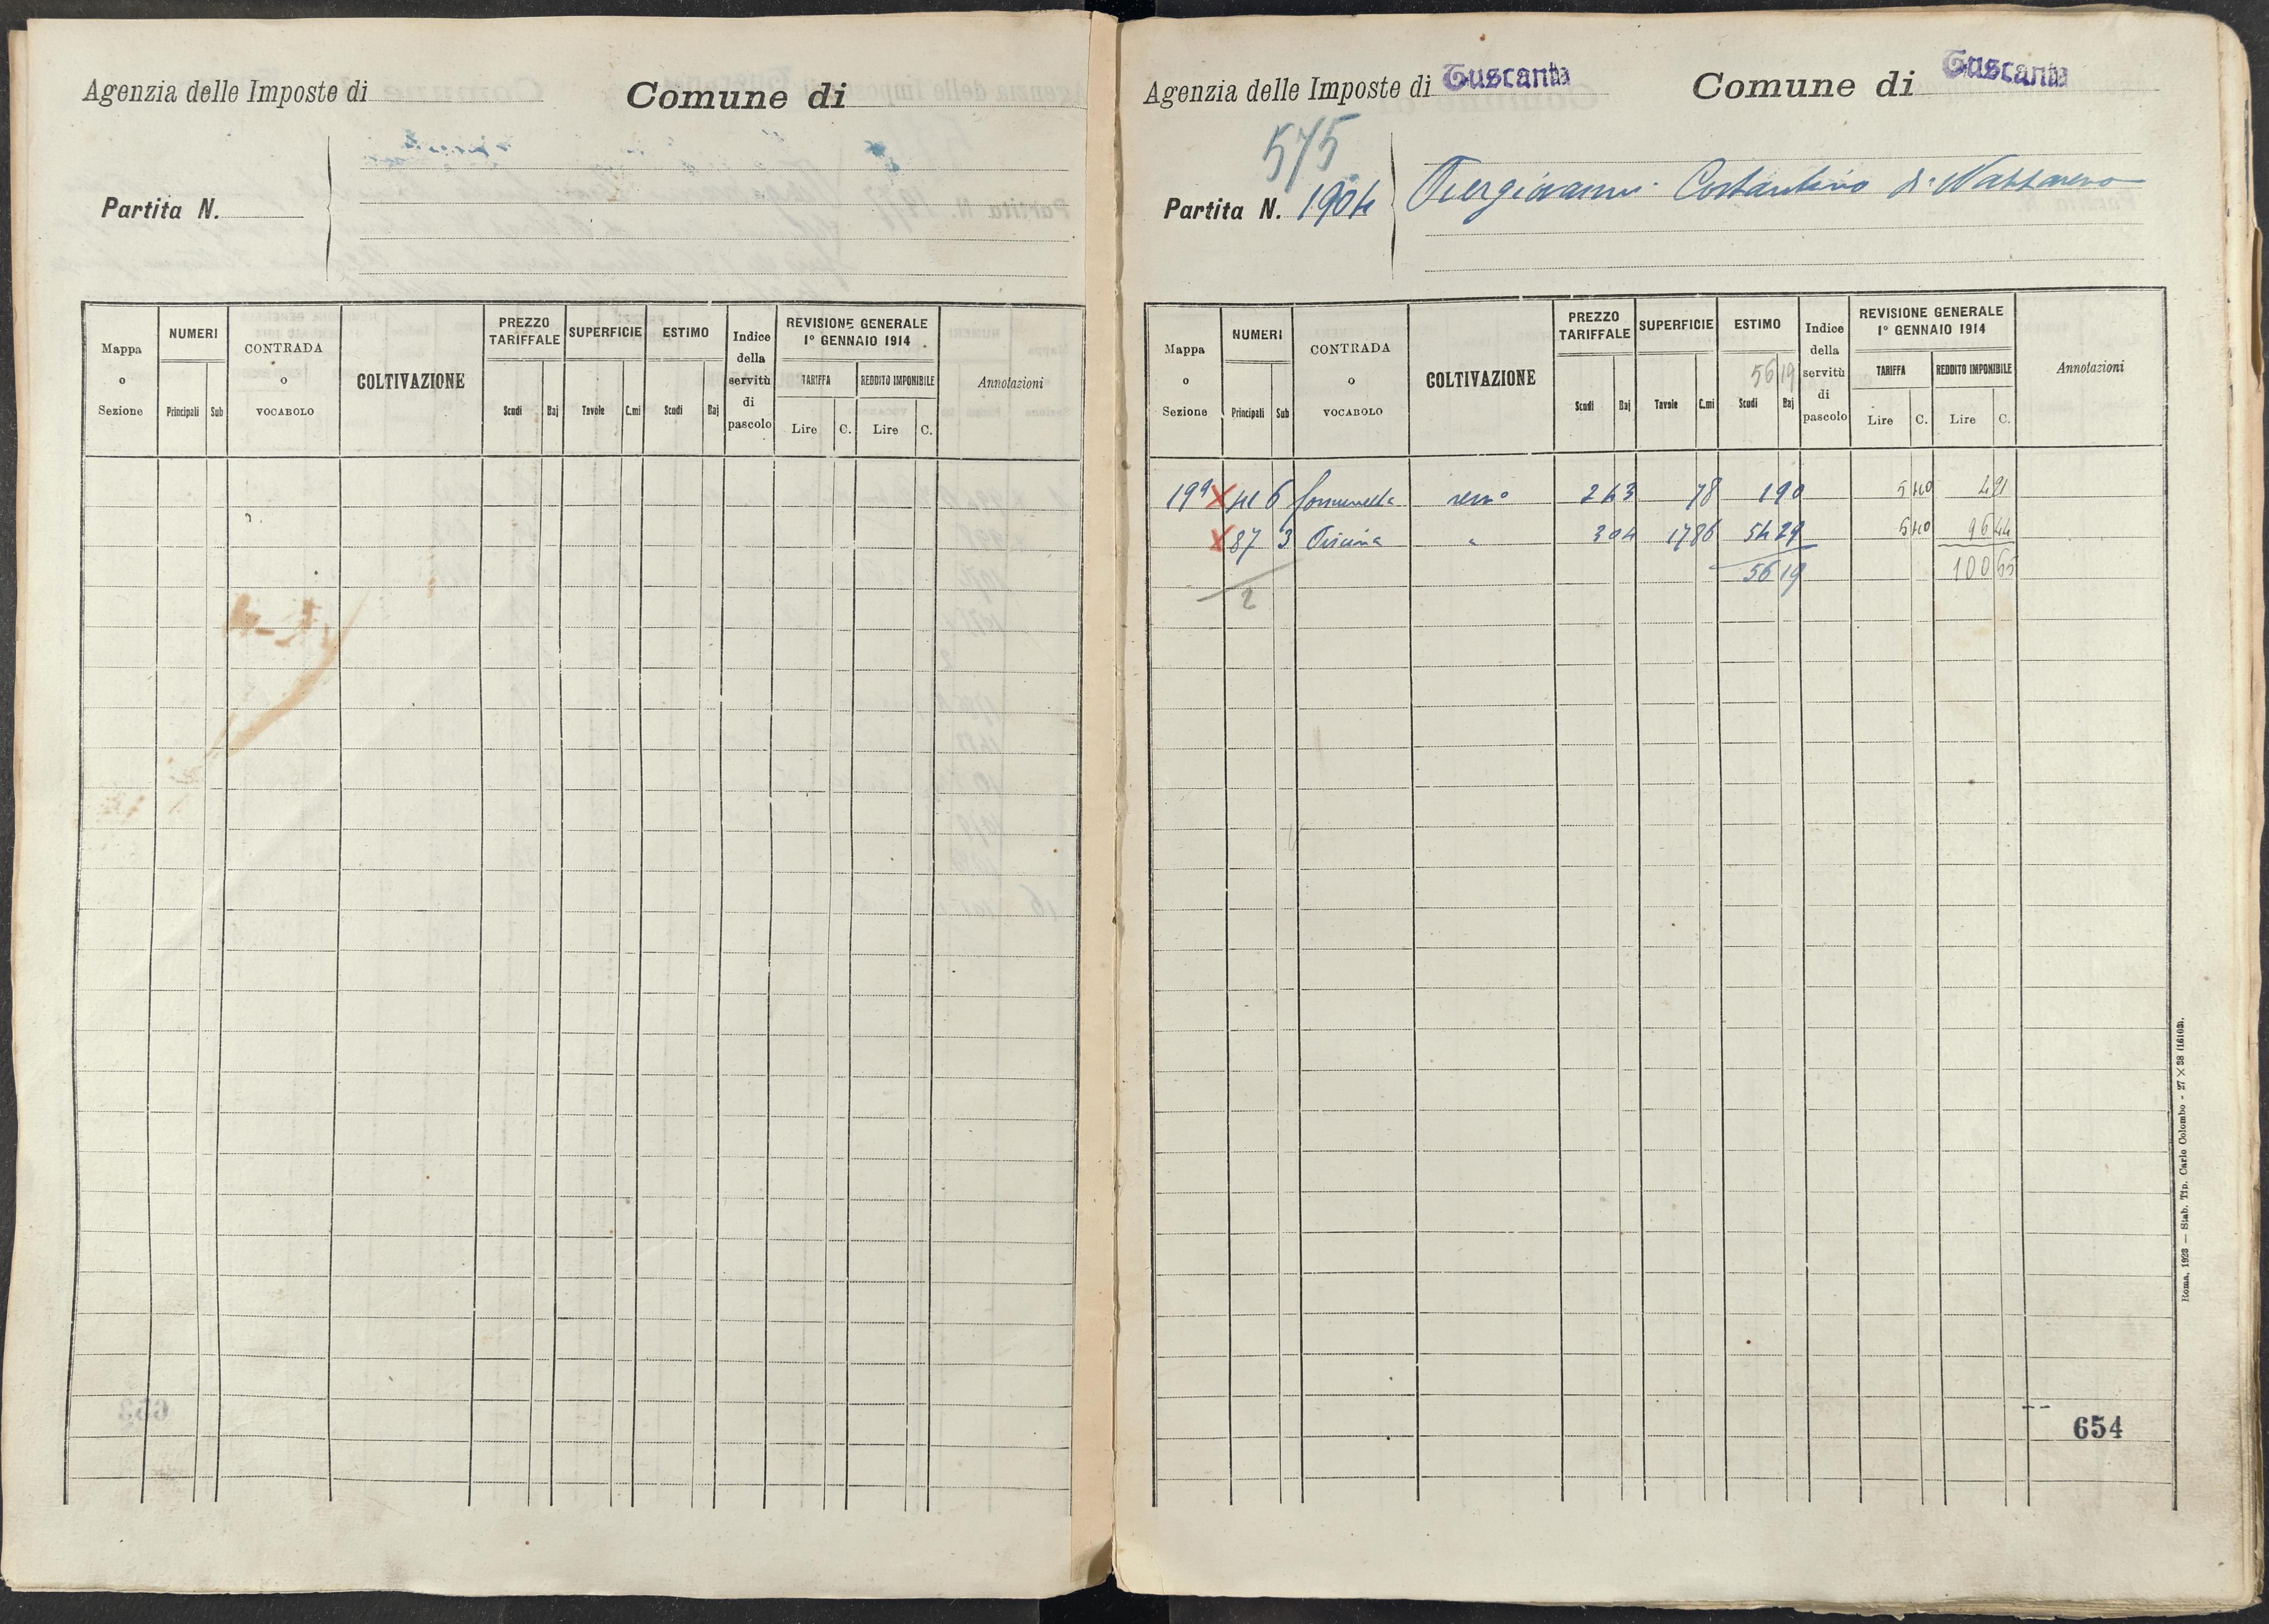 Agenzia delle Imposte di
Comune di
Partita N.
Mappa o Sezione
NUMERI
Principali
Sub
CONTRADA o VOCABOLO
COLTIVAZIONE
PREZZO TARIFFALE
Scudi
Baj
SUPERFICIE
Tavole
C.mi
ESTIMO
Scudi
Baj
Indice della servitù di pascolo
REVISIONE GENERALE
1° GENNAIO 1914
TARIFFA
REDDITO IMPONIBILE
Lire
C.
Lire
C.
Annotazioni
Agenzia delle Imposte di Tuscania
Comune di Tuscania
575
Partita N. 1904
Piergiovanni Costantino di Nazzareno
Mappa o Sezione
NUMERI
Principali
Sub
CONTRADA o VOCABOLO
COLTIVAZIONE
PREZZO TARIFFALE
Scudi
Baj
SUPERFICIE
Tavole
C.mi
ESTIMO
56 19
Scudi
Baj
Indice della servitù di pascolo
REVISIONE GENERALE
1° GENNAIO 1914
TARIFFA
REDDITO IMPONIBILE
Lire
C.
Lire
C.
Annotazioni
19ª X 41 6 sem° 2 43 78 1 90 5 40 4 21
X 87 3 Piscina " 3 04 17 86 54 29 5 40 96 44
56 19 100 65
2
654
Roma, 1923 — Stab. Tip. Carlo Colombo - 27 × 38 (16103).